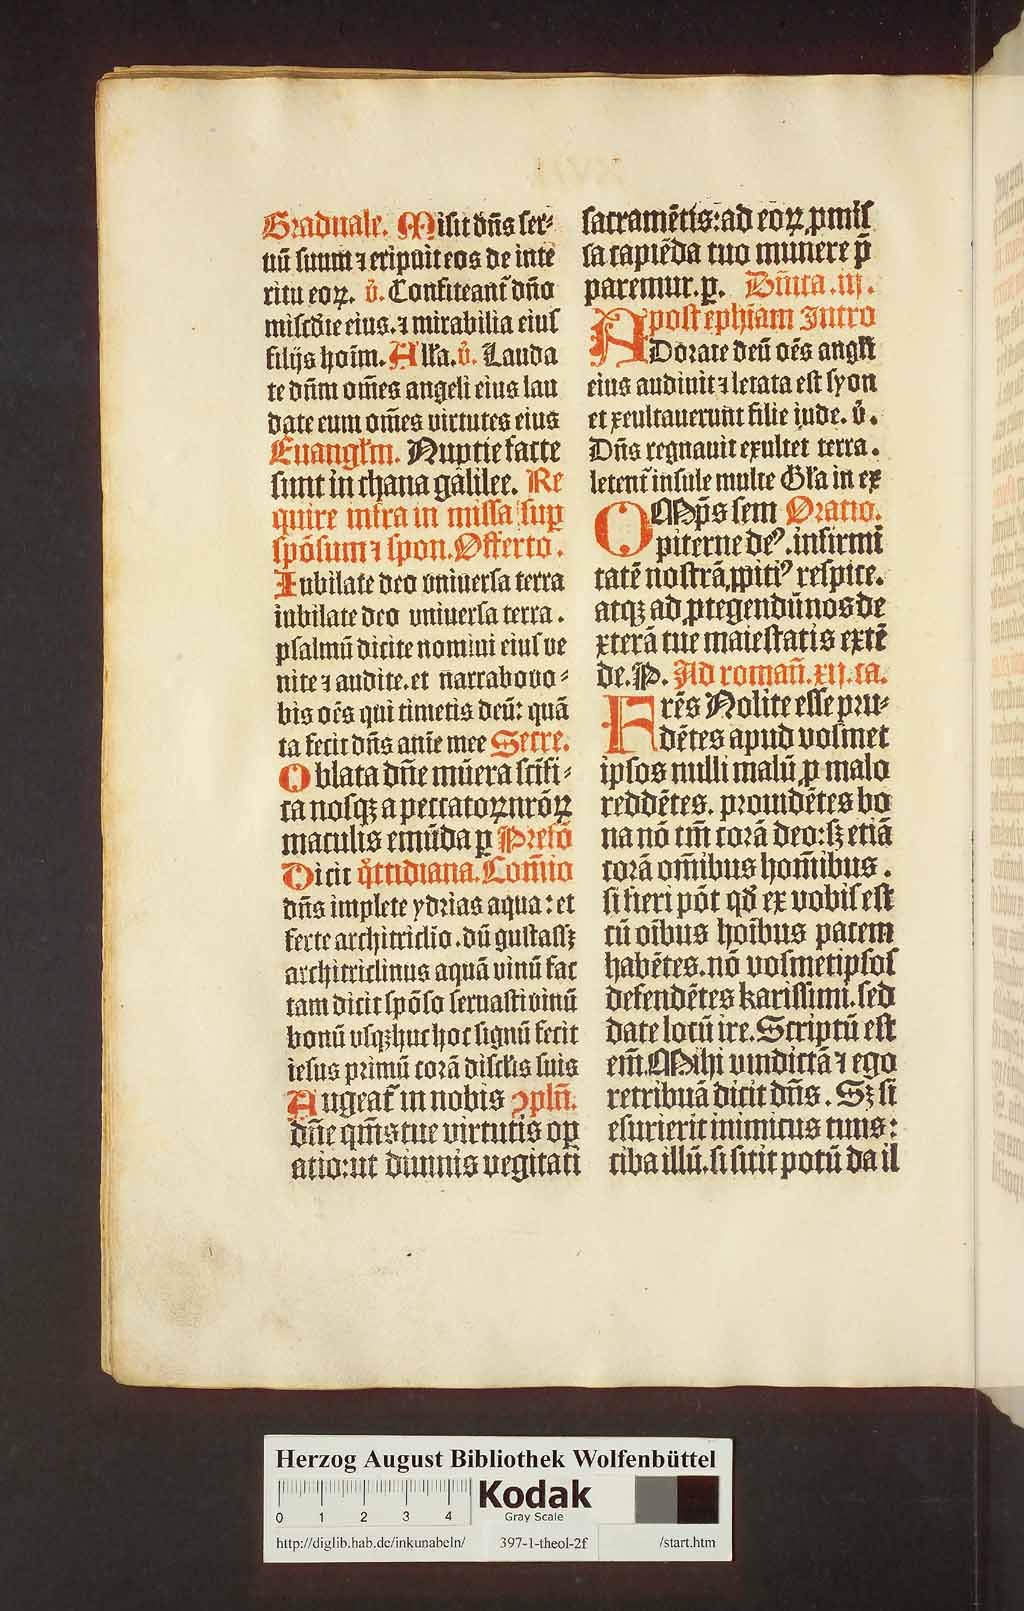 Graduale. Misit dn̄s ser⸗
uū suum ⁊ eripuit eos de inte
ritu eoꝝ. v̾. Confiteant᷑ dn̄o
mischr̄ie eius. ⁊ mirabilia eius
filijs hoīm. Alła. v̾. Lauda
te dn̄m om̄es angeli eius lau
date eum om̄es virtutes eius
Euangłm. Nuptie facte
sunt in chana galilee. Re
quire infra in missa sup̱
spōsum ⁊ spon. Offerto.
Iubilate deo vniuersa terra
iubilate deo vniuersa terra.
psalmū dicite nomini eius ve
nite ⁊ audite. et narrabo vo⸗
bis oēs qui timetis deū: quā
ta fecit dn̄s anīe mee Secre.
Oblata dn̄e mūera scīfi⸗
ca nosqꝫ a peccatoꝝ nr̄oꝝ
maculis emūda ꝑ Prefō
Dicit q̊ttidiana. Com̄io
dn̄s implete ydrias aqua: et
ferte architriclio. dū gustassꝫ
architriclinus aquā vinū fac
tam dicit spōso seruasti vinū
bonū vsqꝫ huc hoc signū fecit
iesus primū corā discłis suis
Augeat᷑ in nobis ꝯpłn̄.
dn̄e qm̄s tue virtutis oꝑ
atio: ut diuinis vegitati
sacramētis: ad eoꝝ ꝓmis
sa capiēda tuo munere p̄
paremur. ꝑ. Dn̄ica. iij.
post ephiam Intro
ADorate deū oēs angłi
eius audiuit ⁊ letata est syon
et exultauerunt filie iude. v̾.
Dn̄s regnauit exultet terra.
letent᷑ insule multe Gła in ex
OMp̄s sem Oratio.
piterne deꝰ. infirmi
tatē nostrā ꝓpitiꝰ respice.
atqꝫ ad ꝓtegendū nos de
xterā tue maiestatis extē
de. P. Ad roman̄. xij. ca.
Frēs Nolite esse pru⸗
dētes apud vosmet
ipsos nulli malū ꝓ malo
reddētes. prouidētes bo
na nō tm̄ corā deo: sꝫ etiā
corā om̄ibus hom̄ibus.
si fieri pōt qđ ex vobis est
cū oībus hoībus pacem
habētes. nō vosmetipsos
defendētes karissimi. sed
date locū ire. Scriptū est
em̄. Mihi vindictā ⁊ ego
retribuā dicit dn̄s. Sꝫ si
esurierit inimicus tuus:
ciba illū. si sitit potū da il
Herzog August Bibliothek Wolfenbüttel
0 1 2 3 4
Kodak
Gray Scale
http://diglib.hab.de/inkunabeln/ 397-1-theol-2f /start.htm